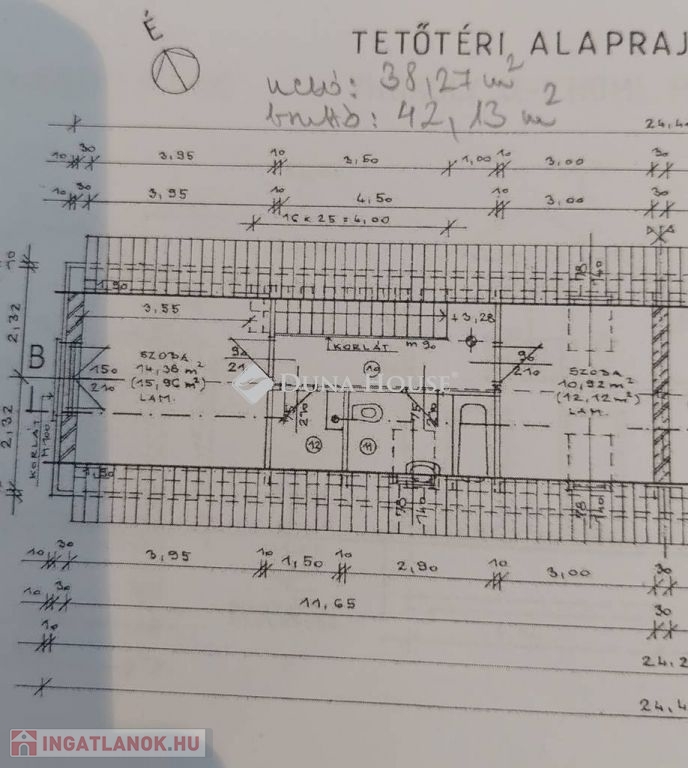 É
TETŐTÉRI ALAPRAJ
nettó: 38,27 m²
bruttó: 42,13 m²
24,4
10 30 3,95 10 3,50 1,00 10 3,00 30
10 30 3,95 10 4,50 10 3,00 30
16 x 25 = 4,00
78
140
10
1,90
2,32
3,55
+3,28
KORLÁT m 90
B
SZOBA
14,36 m²
(15,96 m²)
LAM.
150
210
90
21
10
DUNA HOUSE
90
210
SZOBA
10,92 m²
(12,12 m²)
LAM.
75
210
75
210
12
11
2,32
KORLÁT
M 100
1,90
78
140
78
140
10 30 3,95 10 1,50 10 2,90 10 3,00 30
10 30 11,65 30
10 24,2
24,4
INGATLANOK.HU